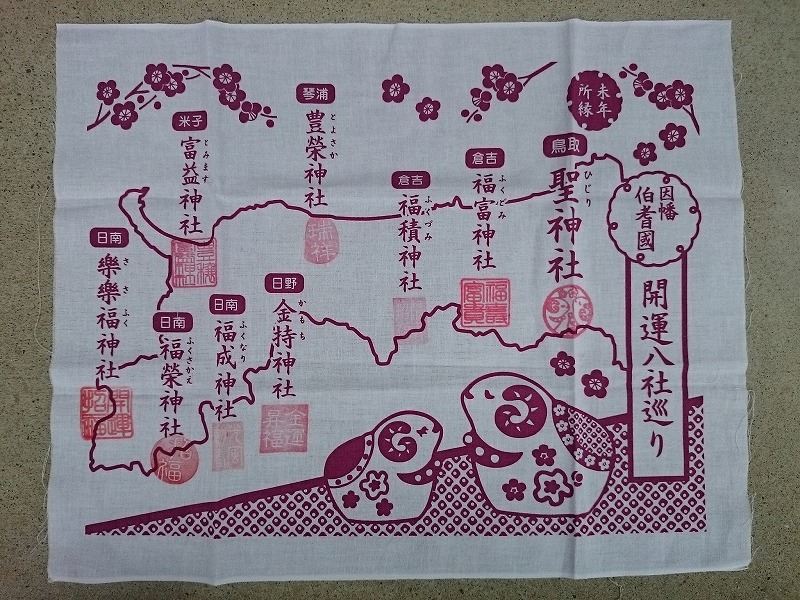 未年
所縁
因幡
伯耆國
開運八社巡り
鳥取
聖神社
ひじり
倉吉
福富神社
ふくどみ
倉吉
福積神社
ふくづみ
琴浦
豊榮神社
とよさか
米子
富益神社
とみます
日野
金持神社
かもち
日南
福成神社
ふくなり
日南
福榮神社
ふくさかえ
日南
樂樂福神社
ささふく
瑞祥
開運
招福